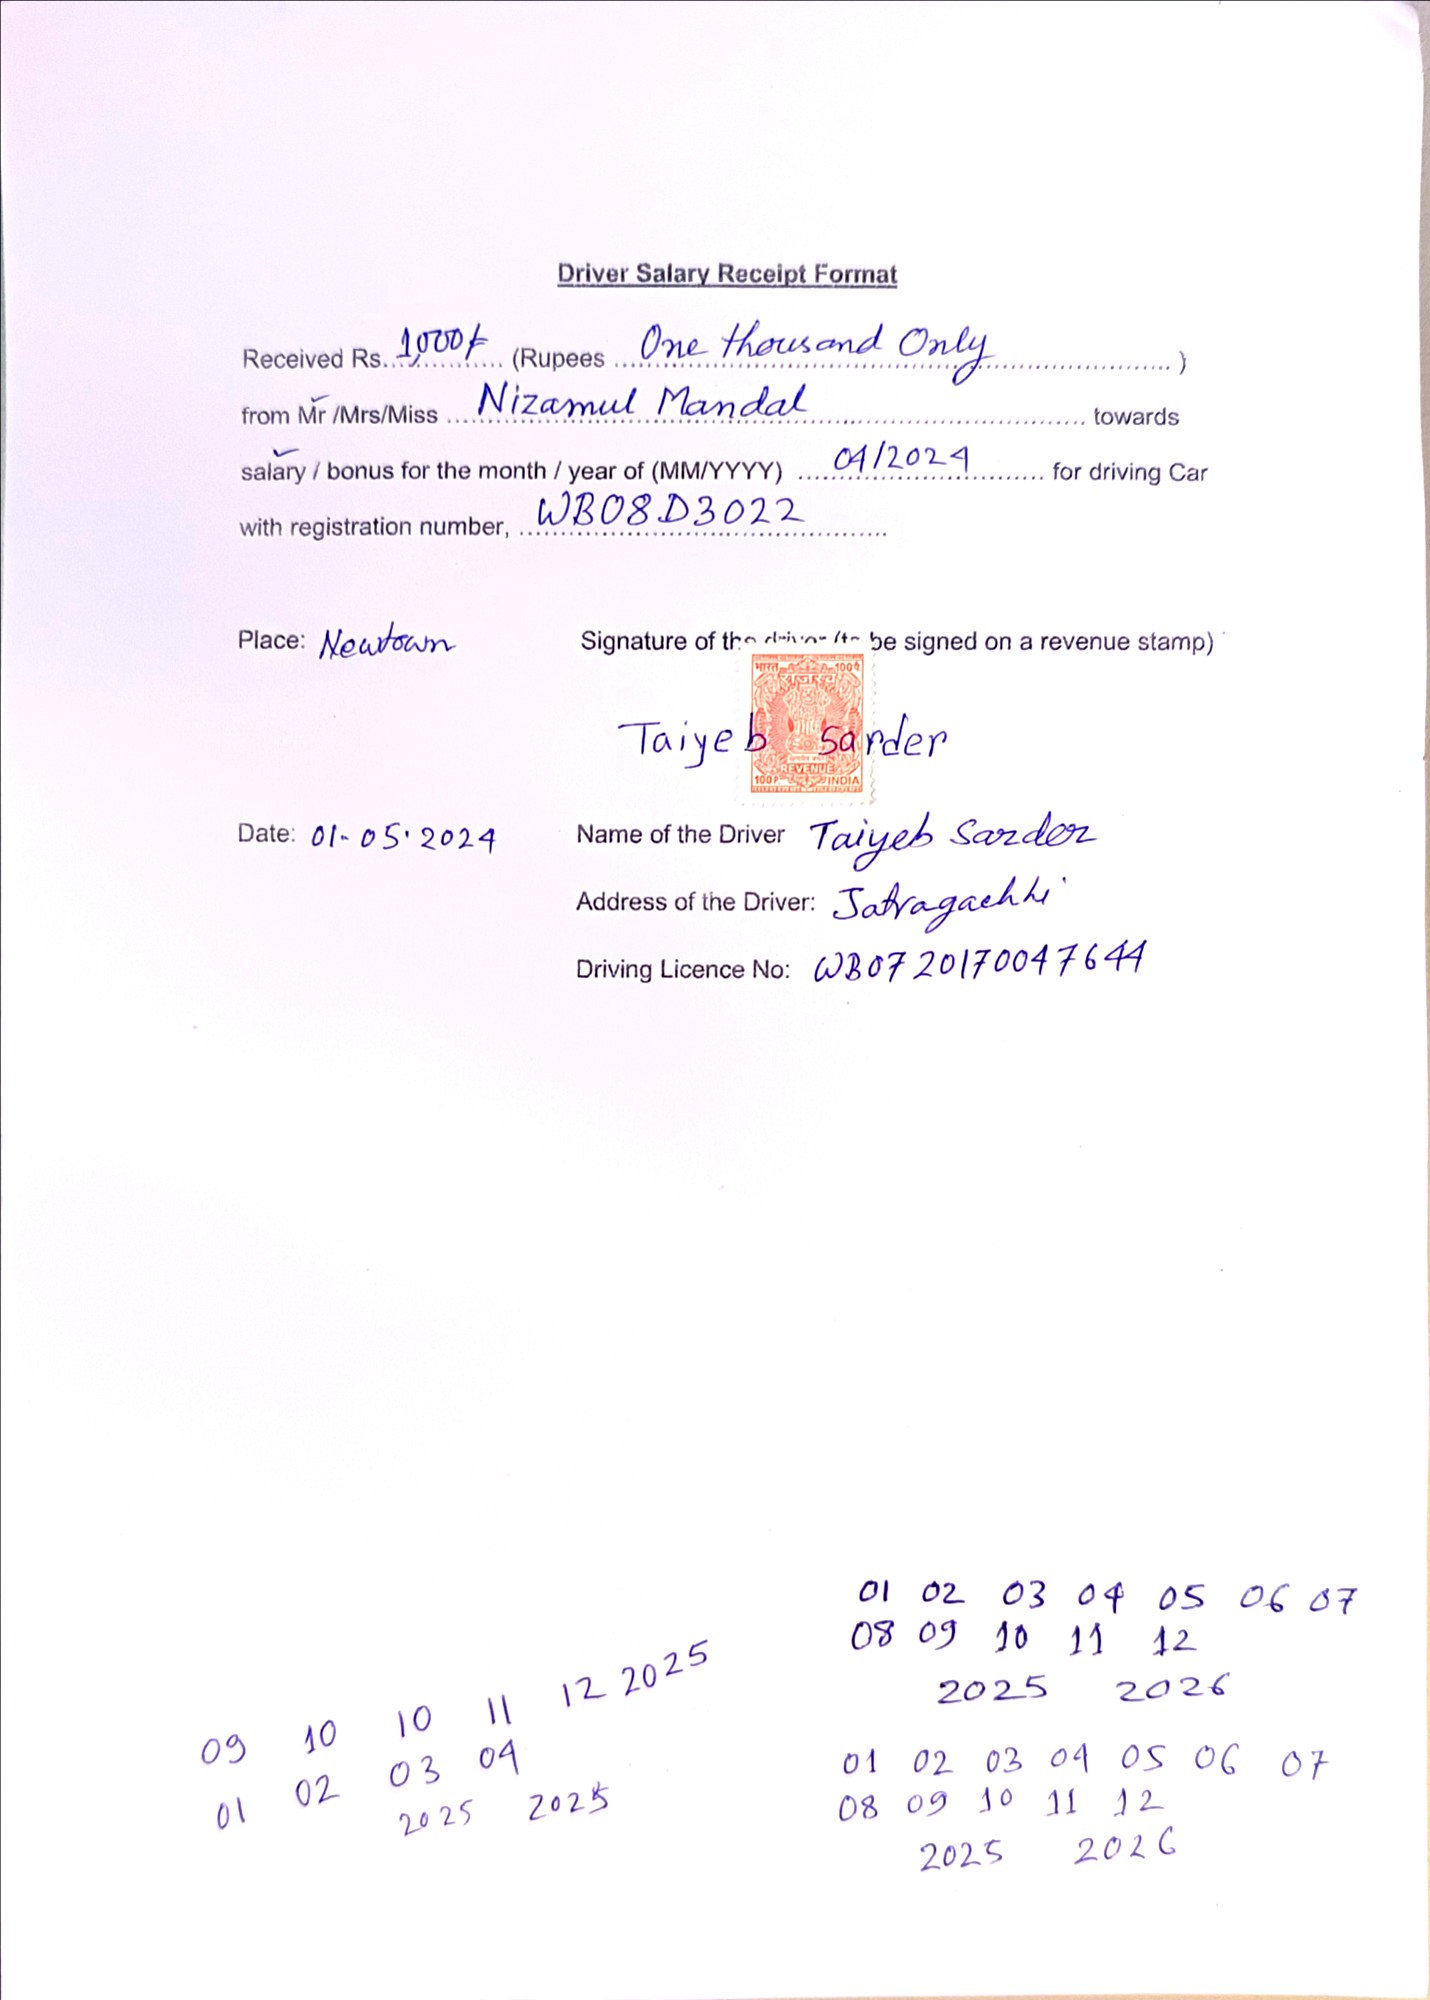 Driver Salary Receipt Format
Received Rs. 1,000/- (Rupees One thousand Only )
from Mr /Mrs/Miss Nizamul Mandal towards
salary / bonus for the month / year of (MM/YYYY) 04/2024 for driving Car
with registration number, WB08D3022
Place: Newtown
Signature of the driver (to be signed on a revenue stamp)
भारत 100
REVENUE
100P INDIA
Taiyeb Sarder
Date: 01-05.2024
Name of the Driver Taiyeb Sarder
Address of the Driver: Jatragachhi
Driving Licence No: WB07 20170047644
01 02 03 04 05 06 07
08 09 10 11 12
2025 2026
09 10 10 11 12 2025
01 02 03 04
2025 2025
01 02 03 04 05 06 07
08 09 10 11 12
2025 2026